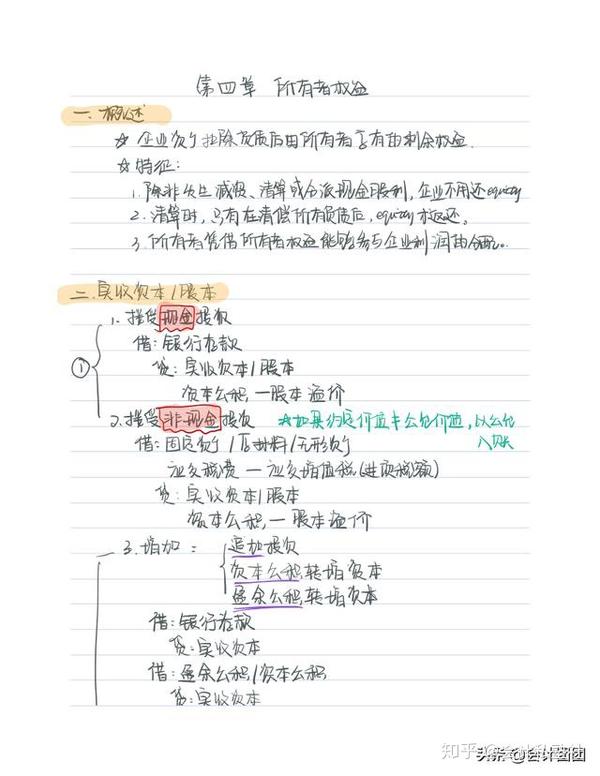 第四章 所有者权益
一.概述
☆ 企业资产扣除负债后由所有者享有的剩余权益.
☆特征:
1.除非发生减资、清算或分派现金股利,企业不用还equity
2.清算时,只有在清偿所有负债后,equity才返还。
3.所有者凭借所有者权益能够参与企业利润的分配。
二.实收资本/股本
① 1.接受现金投资
借:银行存款
贷:实收资本/股本
资本公积,—股本溢价
2.接受非现金投资 ☆如果约定价值≠公允价值,以公允
入账
借:固定资产/原材料/无形资产
应交税费—应交增值税(进项税额)
贷:实收资本/股本
资本公积,—股本溢价
3.增加:
追加投资
资本公积,转增资本
盈余公积,转增资本
借:银行存款
贷:实收资本
借:盈余公积/资本公积
贷:实收资本
知乎
头条@会计图图